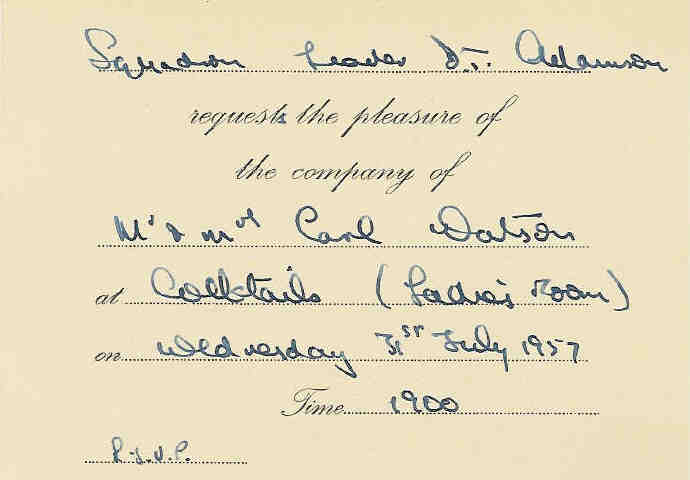 Squadron Leader D.J. Adamson
requests the pleasure of
the company of
Mr & Mrs Carl Watson
at Cocktails (Ladies Room)
on Wednesday 31ST July 1957
Time 1900
R.S.V.P.